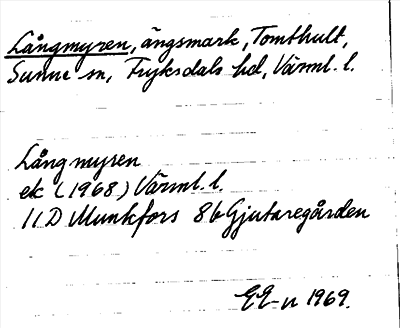 Långmyren, ängsmark, Tomthult,
Sunne sn, Fryksdals hd, Värml. l.
Långmyren
ek (1968) Värml. l.
11D Munkfors 8b Gjutaregården
EE-n 1969.